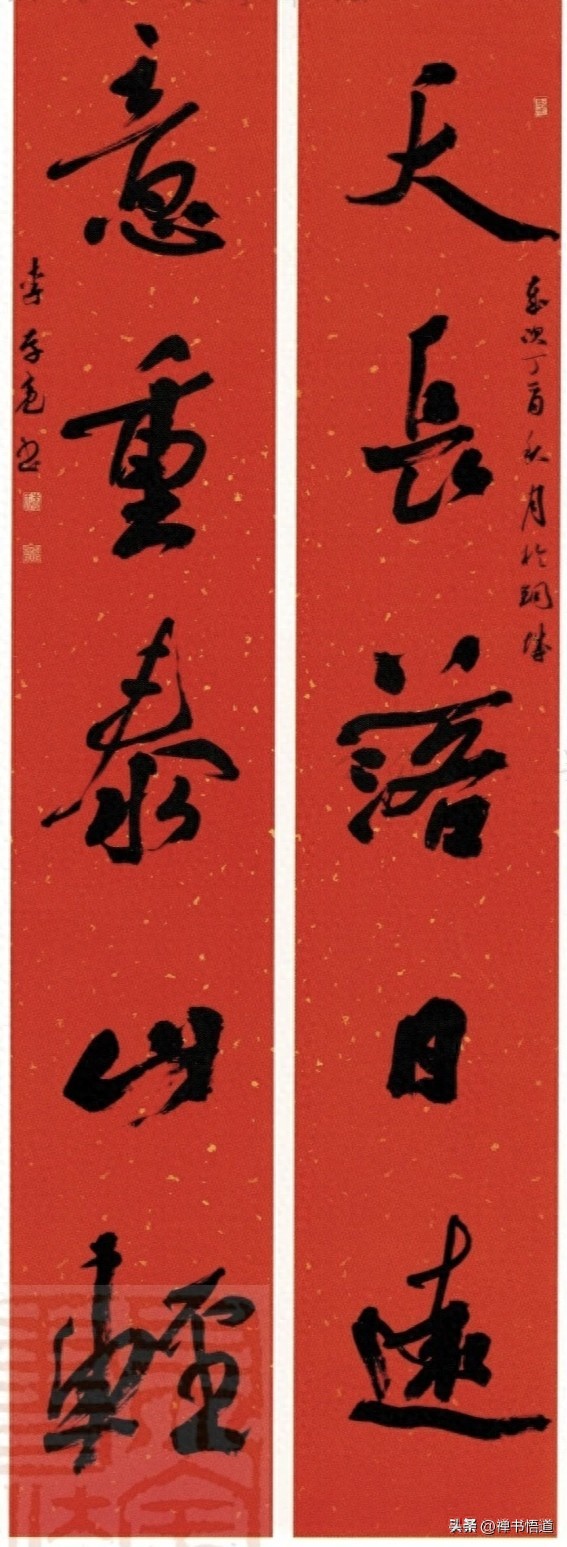 天長落日遠
歲次丁酉秋月於銅陵
意重泰山輕
李存亮书
头条 @禅书悟道